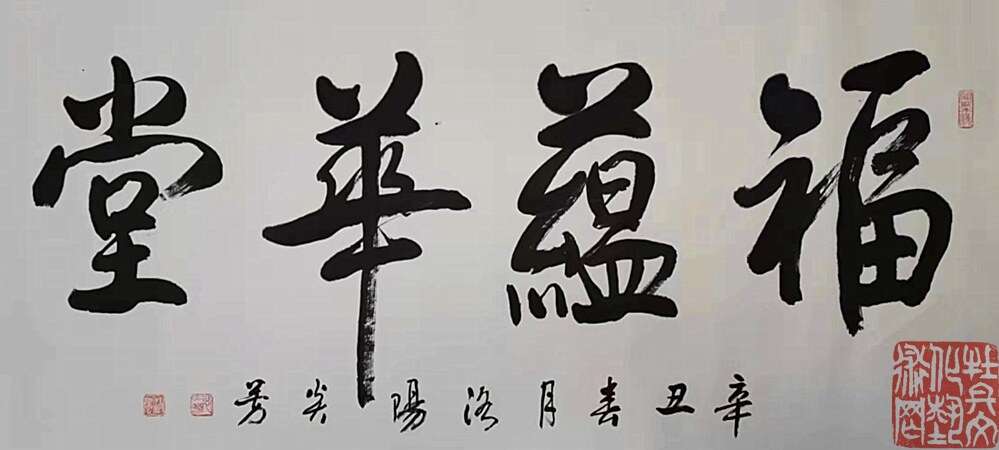 福蘊華堂
辛丑春月洛陽炎芳